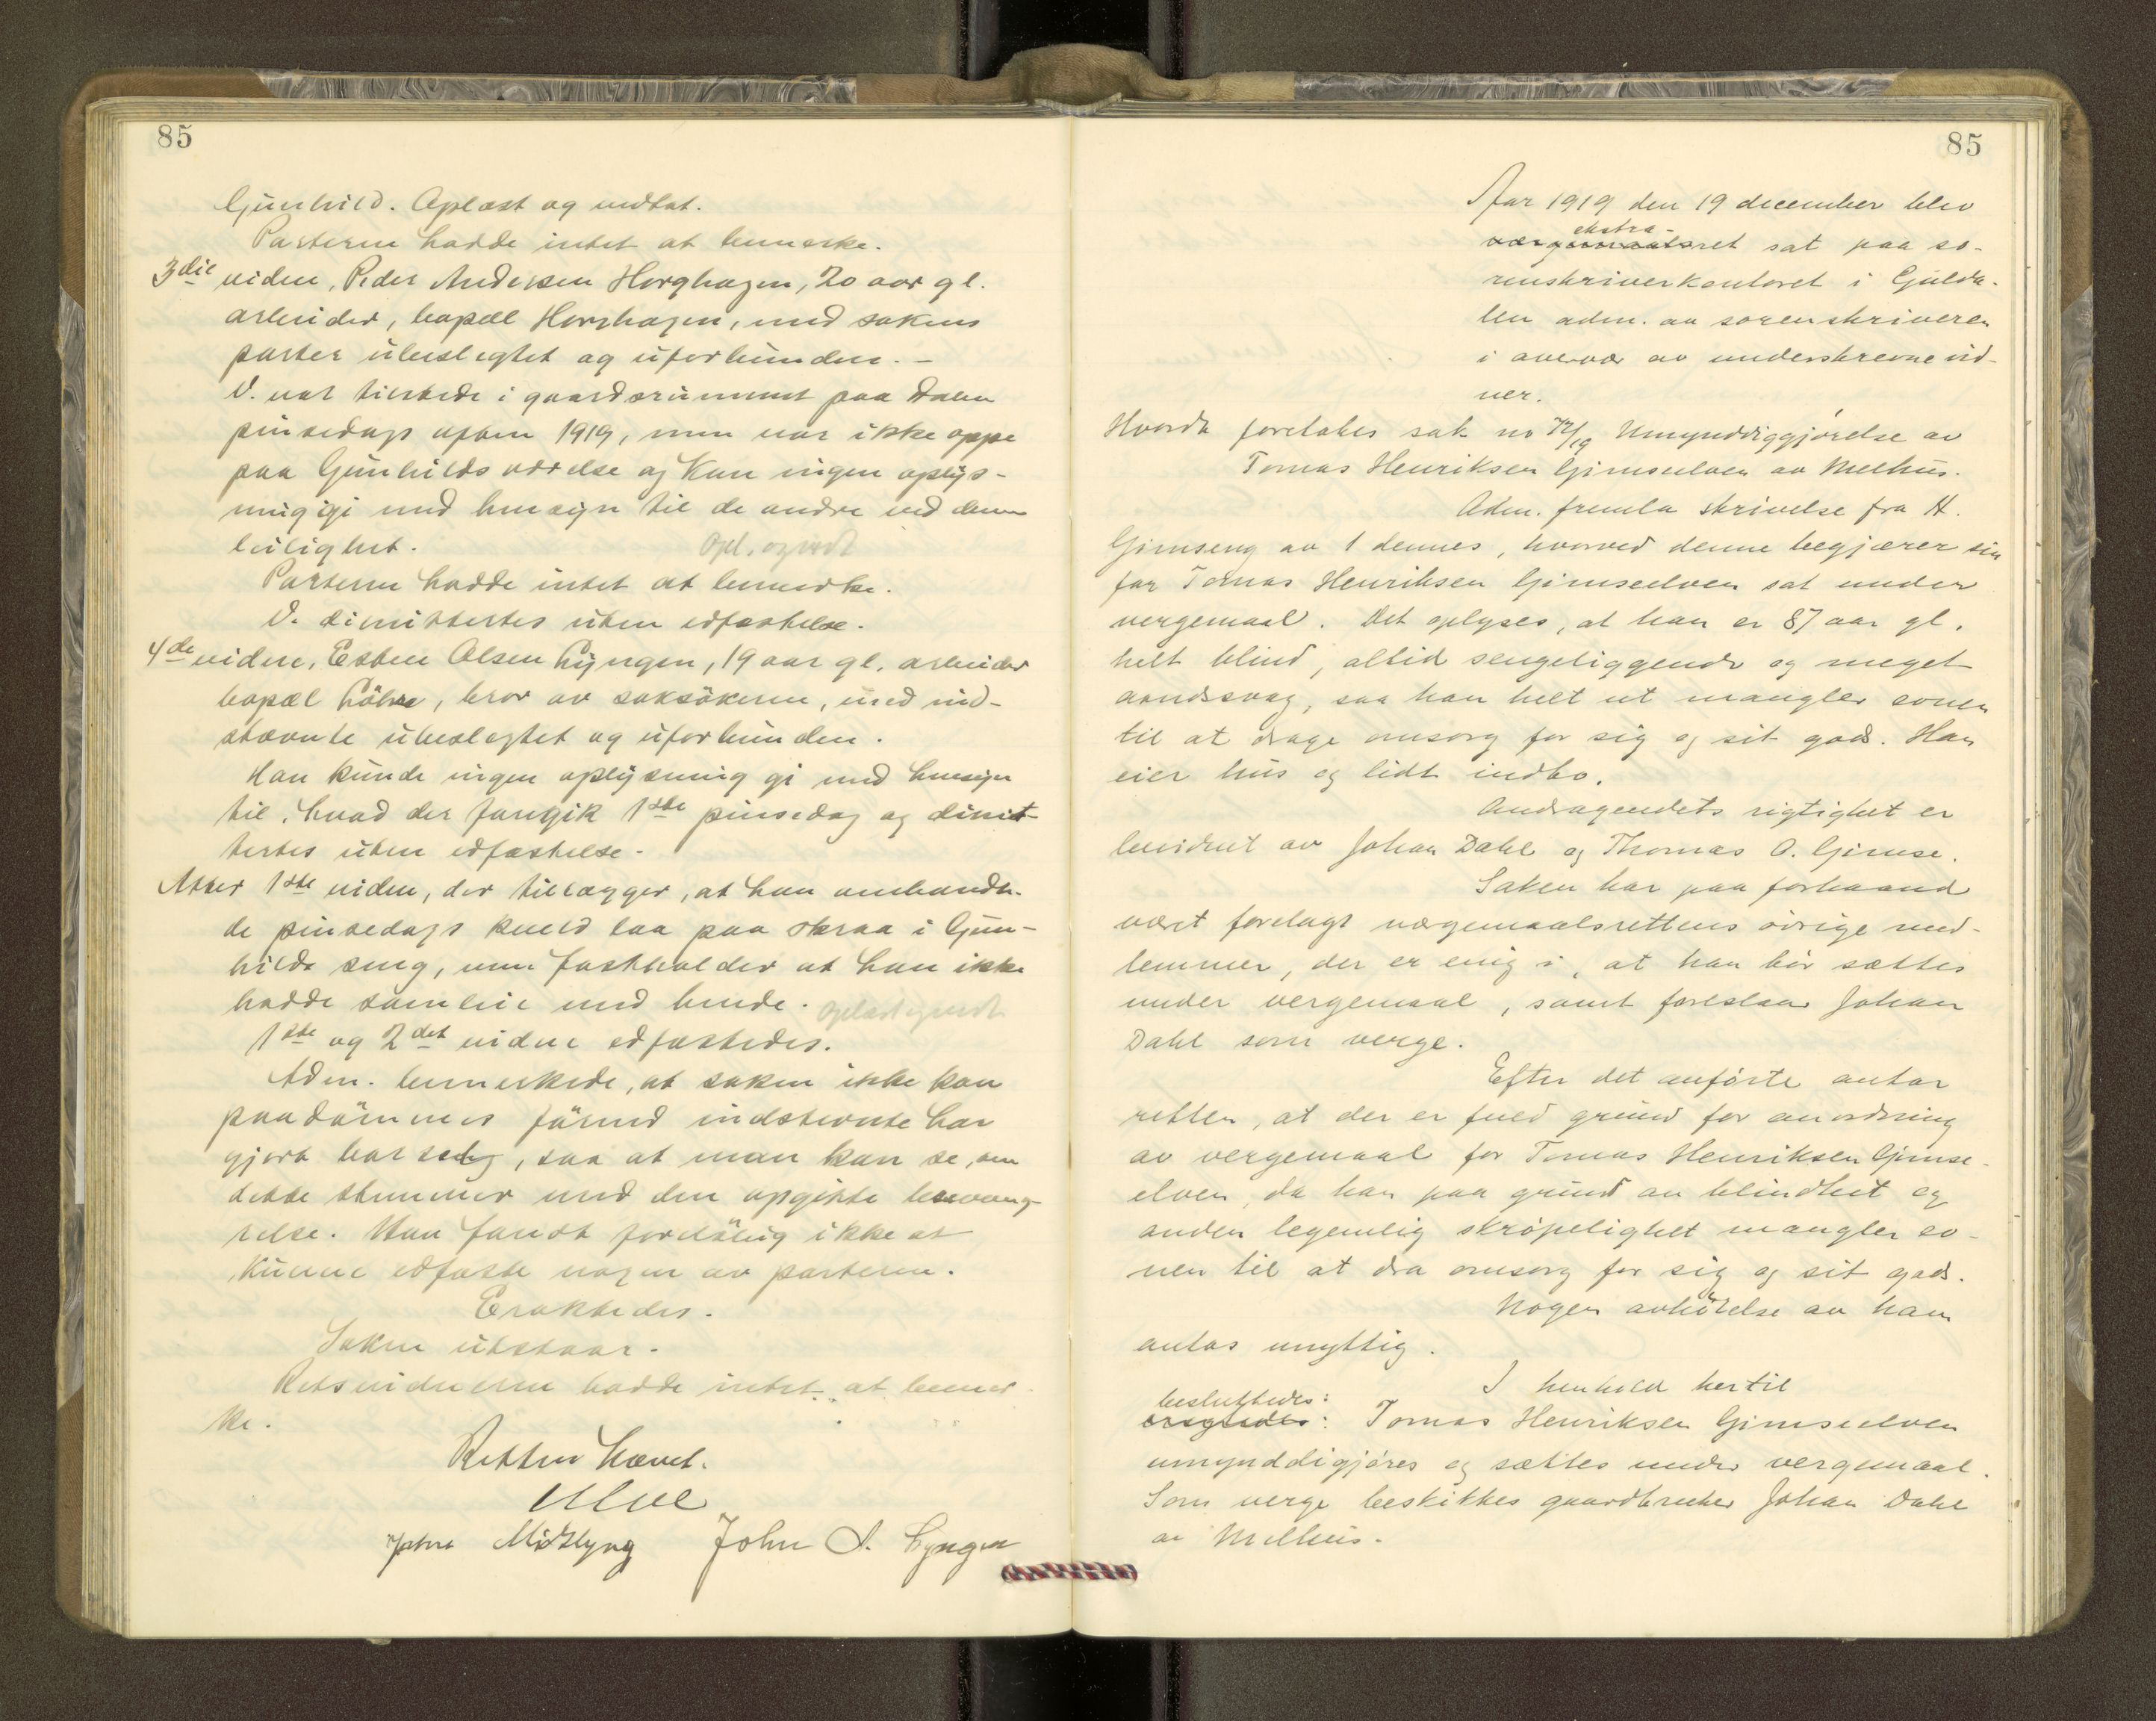 85
Gunhild. Oplæst og vedtat.
Parterne hadde intet at bemerke.
3die vidne, Peder Andersen Horghagen, 20 aar gl.
arbeider, bopæl Horghagen, med sakens
parter ubeslegtet og uforbunden. –
V. var tilstede i gaardsrummet paa Dalen
pinsedags aften 1919, men var ikke oppe
paa Gunhilds værelse og kan ingen oplys-
ning gi med hensyn til de andre ved denne
leilighet. Opl. og vedt
Parterne hadde intet at bemerke.
V. dimittertes uten edfæstelse.
4de vidne, Esten Olsen Lyngen, 19 aar gl. arbeider
bopæl , bror av saksökeren, med ind-
stævnte ubeslegtet og uforbunden.
Han kunde ingen oplysning gi med hensyn
til, hvad der foregik 1ste pinsedag og dimit-
tertes uten edfæstelse.
Atter 1ste vidne, der tillægger, at han omhandle-
de pinsedags kveld laa paa skraa i Gun-
hilds seng, men fastholder at han ikke
hadde samleie med hende. Oplæst og vedt
1ste og 2det vidne edfæstedes.
Adm. bemerkede, at saken ikke kan
paadömmes förend indstevnte har
gjort barselseng, saa at man kan se, om
dette stemmer med den opgivne besvang-
relse. Man fandt forelöbig ikke at
kunne edfæste nogen av parterne.
Eraktedes.
Saken utstaar.
Retsvidnerne hadde intet at bemer-
ke.
Retten hævet.
John Midtlyng John O. Lyngen
85
Aar 1919 den 19 december blev
ekstra-
vergemaalsret sat paa so-
renskriverkontoret i Gulda-
len adm. av sorenskriveren
i overvær av underskrevne vid-
ner.
Hvorda foretokes sak no 72/19 Umynddiggjørelse av
Tomas Henriksen Gimseelven av Melhus.
Adm. fremla skrivelse fra H.
Gimseng av 1 dennes, hvorved denne begjærer sin
far Tomas Henriksen Gimseelven sat under
vergemaal. Det oplyses, at han er 87 aar gl.
helt blind, altid sengeliggende og meget
aandssvag, saa han helt ut mangler evnen
til at drage omsorg for sig og sit gods. Han
eier hus og lidt indbo.
Andragendets rigtighet er
bevidnet av Johan Dahl og Thomas O. Gimse.
Saken har paa forhaand
været forelagt vergemaalsrettens øvrige med-
lemmer, der er enig i, at han bör sættes
under vergemaal, samt foreslaar Johan
Dahl som verge.
Efter det anførte antar
retten, at der er fuld grund for anordning
av vergemaal for Tomas Henriksen Gimse-
elven, da han paa grund av blindhet og
anden legemlig skrøpelighet mangler ev-
nen til at dra omsorg for sig og sit gods.
Nogen avhörelse av ham
antas unyttig.
I henhold hertil
besluttedes:
eragtedes: Tomas Henriksen Gimseelven
umynddigjøres og sættes under vergemaal.
Som verge beskikkes gaardbruker Johan Dahl
av Melhus.